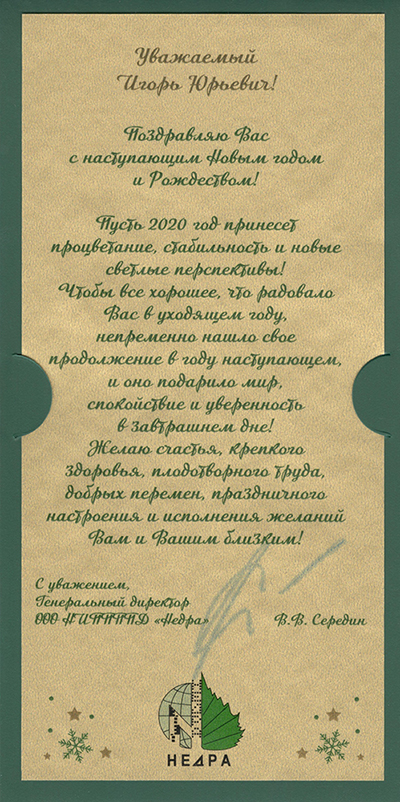 Уважаемый
Игорь Юрьевич!
Поздравляю Вас
с наступающим Новым годом
и Рождеством!
Пусть 2020 год принесет
процветание, стабильность и новые
светлые перспективы!
Чтобы все хорошее, что радовало
Вас в уходящем году,
непременно нашло свое
продолжение в году наступающем,
и оно подарило мир,
спокойствие и уверенность
в завтрашнем дне!
Желаю счастья, крепкого
здоровья, плодотворного труда,
добрых перемен, праздничного
настроения и исполнения желаний
Вам и Вашим близким!
С уважением,
Генеральный директор
ООО НИПППД «Недра» В.В. Середин
НЕДРА